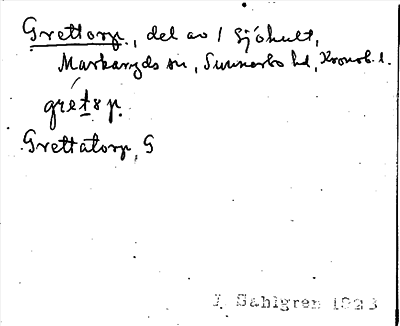 Grettorp., del av 1 Sjöhult,
Markaryds sn, Sunnerbo hd, Kronob. l.
gré̱t8p.
Grettatorp, G
J. Sahlgren 1923